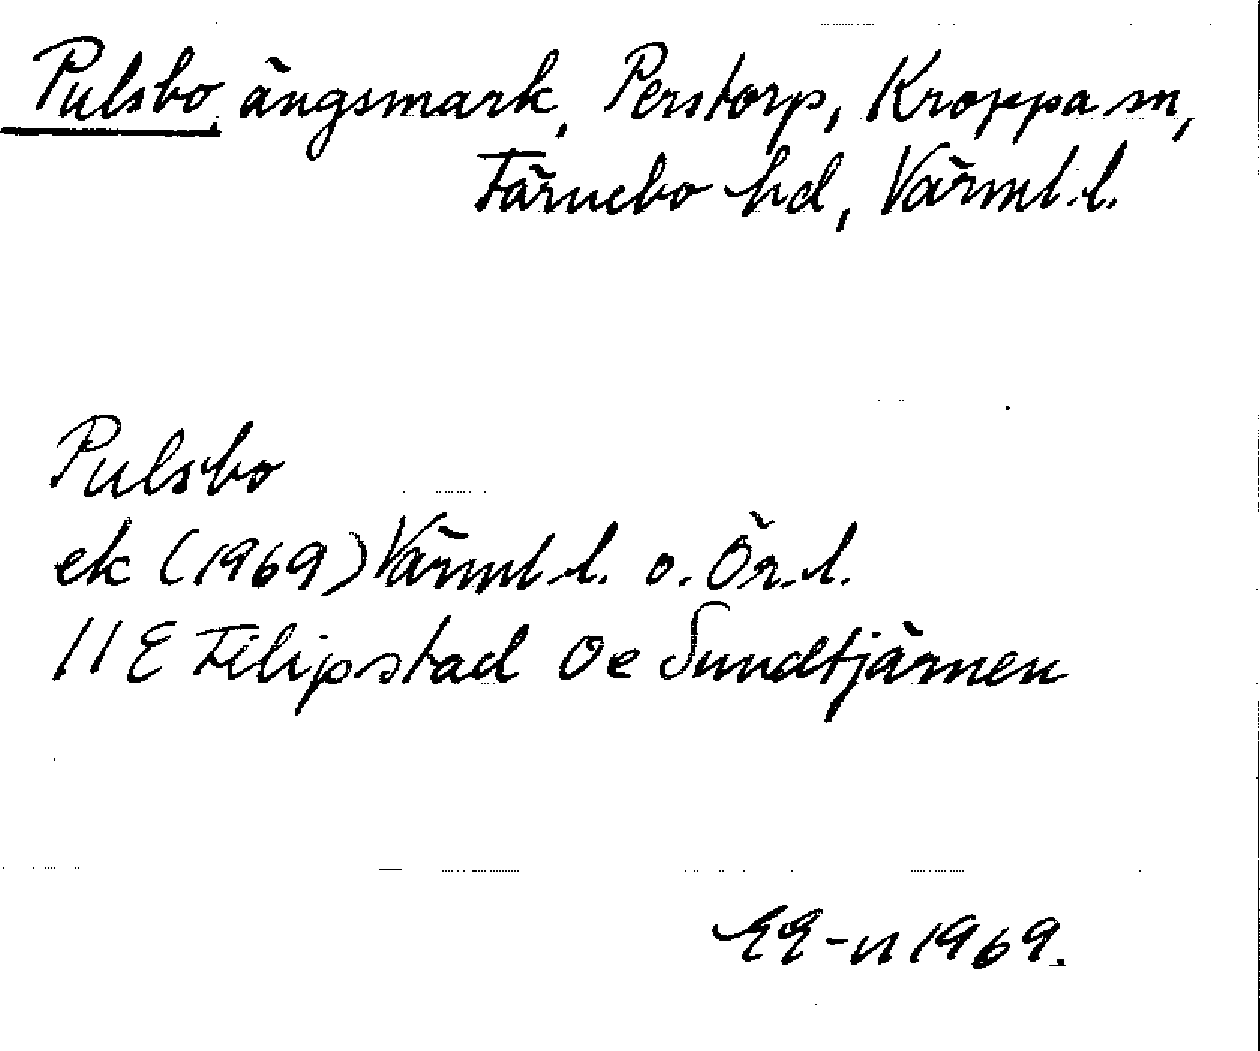 Pulsbo, ängsmark, Perstorp, Kroppa sn,
Färnebo hd, Värml. l.
Pulsbo
ek (1969) Värml. l. o. Ör. l.
11 E Filipstad 0 e Sundtjärnen
EE-n 1969.